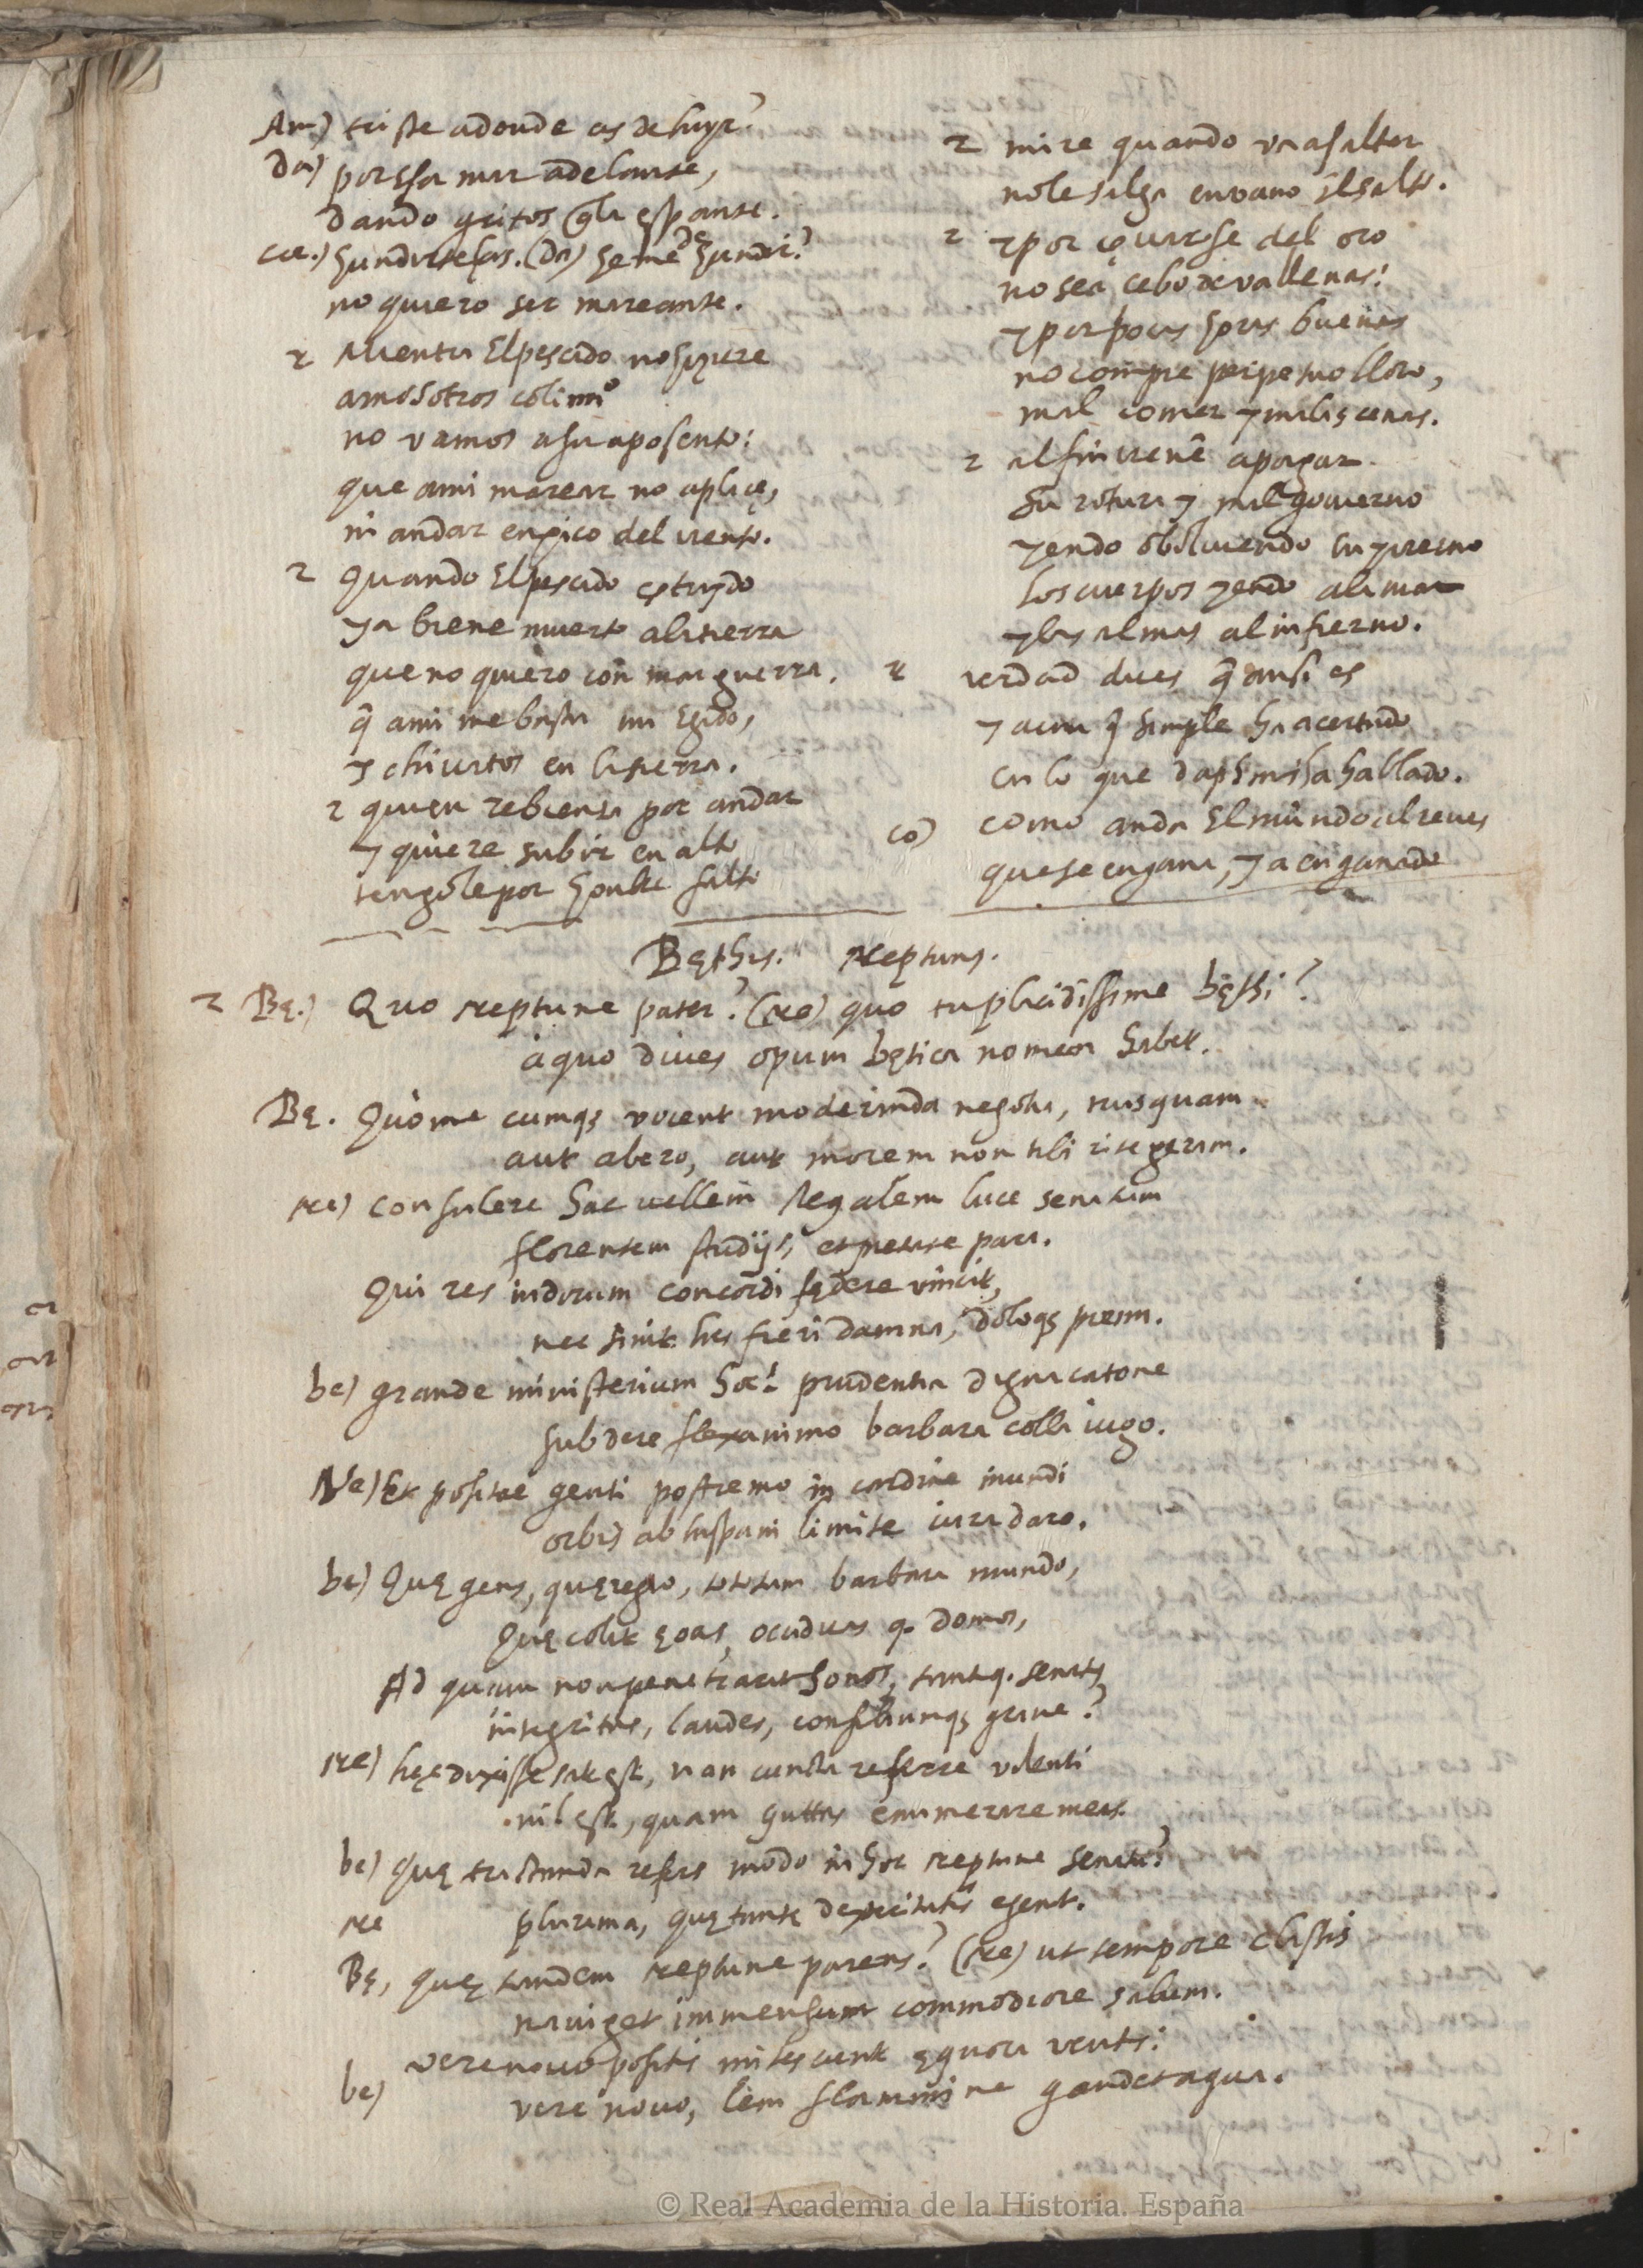 Am) triste adonde as de huyr?
Da) por essa mar adelante,
dando gritos q̃ la espante.
cie.) hundirte has. (Da) he me de hundir?
no quiero ser mareante.
2 Mientra El pescado no hiziere
a nosotros colimi°
no vamos a su aposento:
que a mi marear no aplice,
ni andar en pico del viento.
2 Quando El pescado
ya biene muerto a la tierra
que no quiero con mar guerra,
q̃ a mi me basta mi Egido,
y chivatos en la sierra.
2 quien rebienta por andar
y quiere subir en alto
tengole por hombre falto
2 mire quando va a saltar
no le salga en vano El salto.
2 y por del oro
no sea cebo de vallenas:
y por pocas horas buenas
no compre perpetuo lloro,
mal comer y malas cenas.
2 al fin vienẽ a pagar
su rotura y mal govierno
yendo en ynvierno
los cuerpos yendo a la mar
y las almas al infierno.
2 verdad dices q̃ ansi es
y aun q̃ simple ha acertado
en lo que daphnis ha hallado.
co) como anda El mundo al reves
que se engana, y a enganado
Bęthis. Neptunus.
2 Bę.) Quo Neptune pater? (Ne) quo tu placidissime bęthi?
à quo dives opum bętica nomen habet.
Bę. Quo me cumqȝ vocent moderanda negotia, nusquam
aut abero, aut morem non tibi rite geram.
Ne) consulere hac vellem Regalem luce senatum
florentem studijs, et pietate pari.
Qui res indorum concordi fędere vincit,
nec sinit his fieri damna, dolosqȝ premi.
be) grande ministerium hoc! prudentia digna catone
subdere flexanimo barbara colla iugo.
Ne) Et positae genti postremo in cardine mundi
orbis ab hispani limite iura dare.
be) Quę gens, quę regio, toto tam barbara mundo,
Quę colit ęoas, occiduas q. domos,
Ad quam non penetravit honos, tantiq. senatus
integritas, laudes, consiliumqȝ grave?
Ne) hęc dixisse sat est, nam cuncta referre volenti
nil est, quam guttas enumerare meas.
be) Quę tractanda refers modo in hoc Neptune senatu?
Ne plurima, quę tantę dexteritatis egent.
Bę, quę tandem Neptune parens? (Ne) ut tempore classis
naviget immensum commodiore salum.
be) vere novo positis mitescunt ęquora ventis:
vere novo, leni flamine gaudet aqua.
© Real Academia de la Historia. España